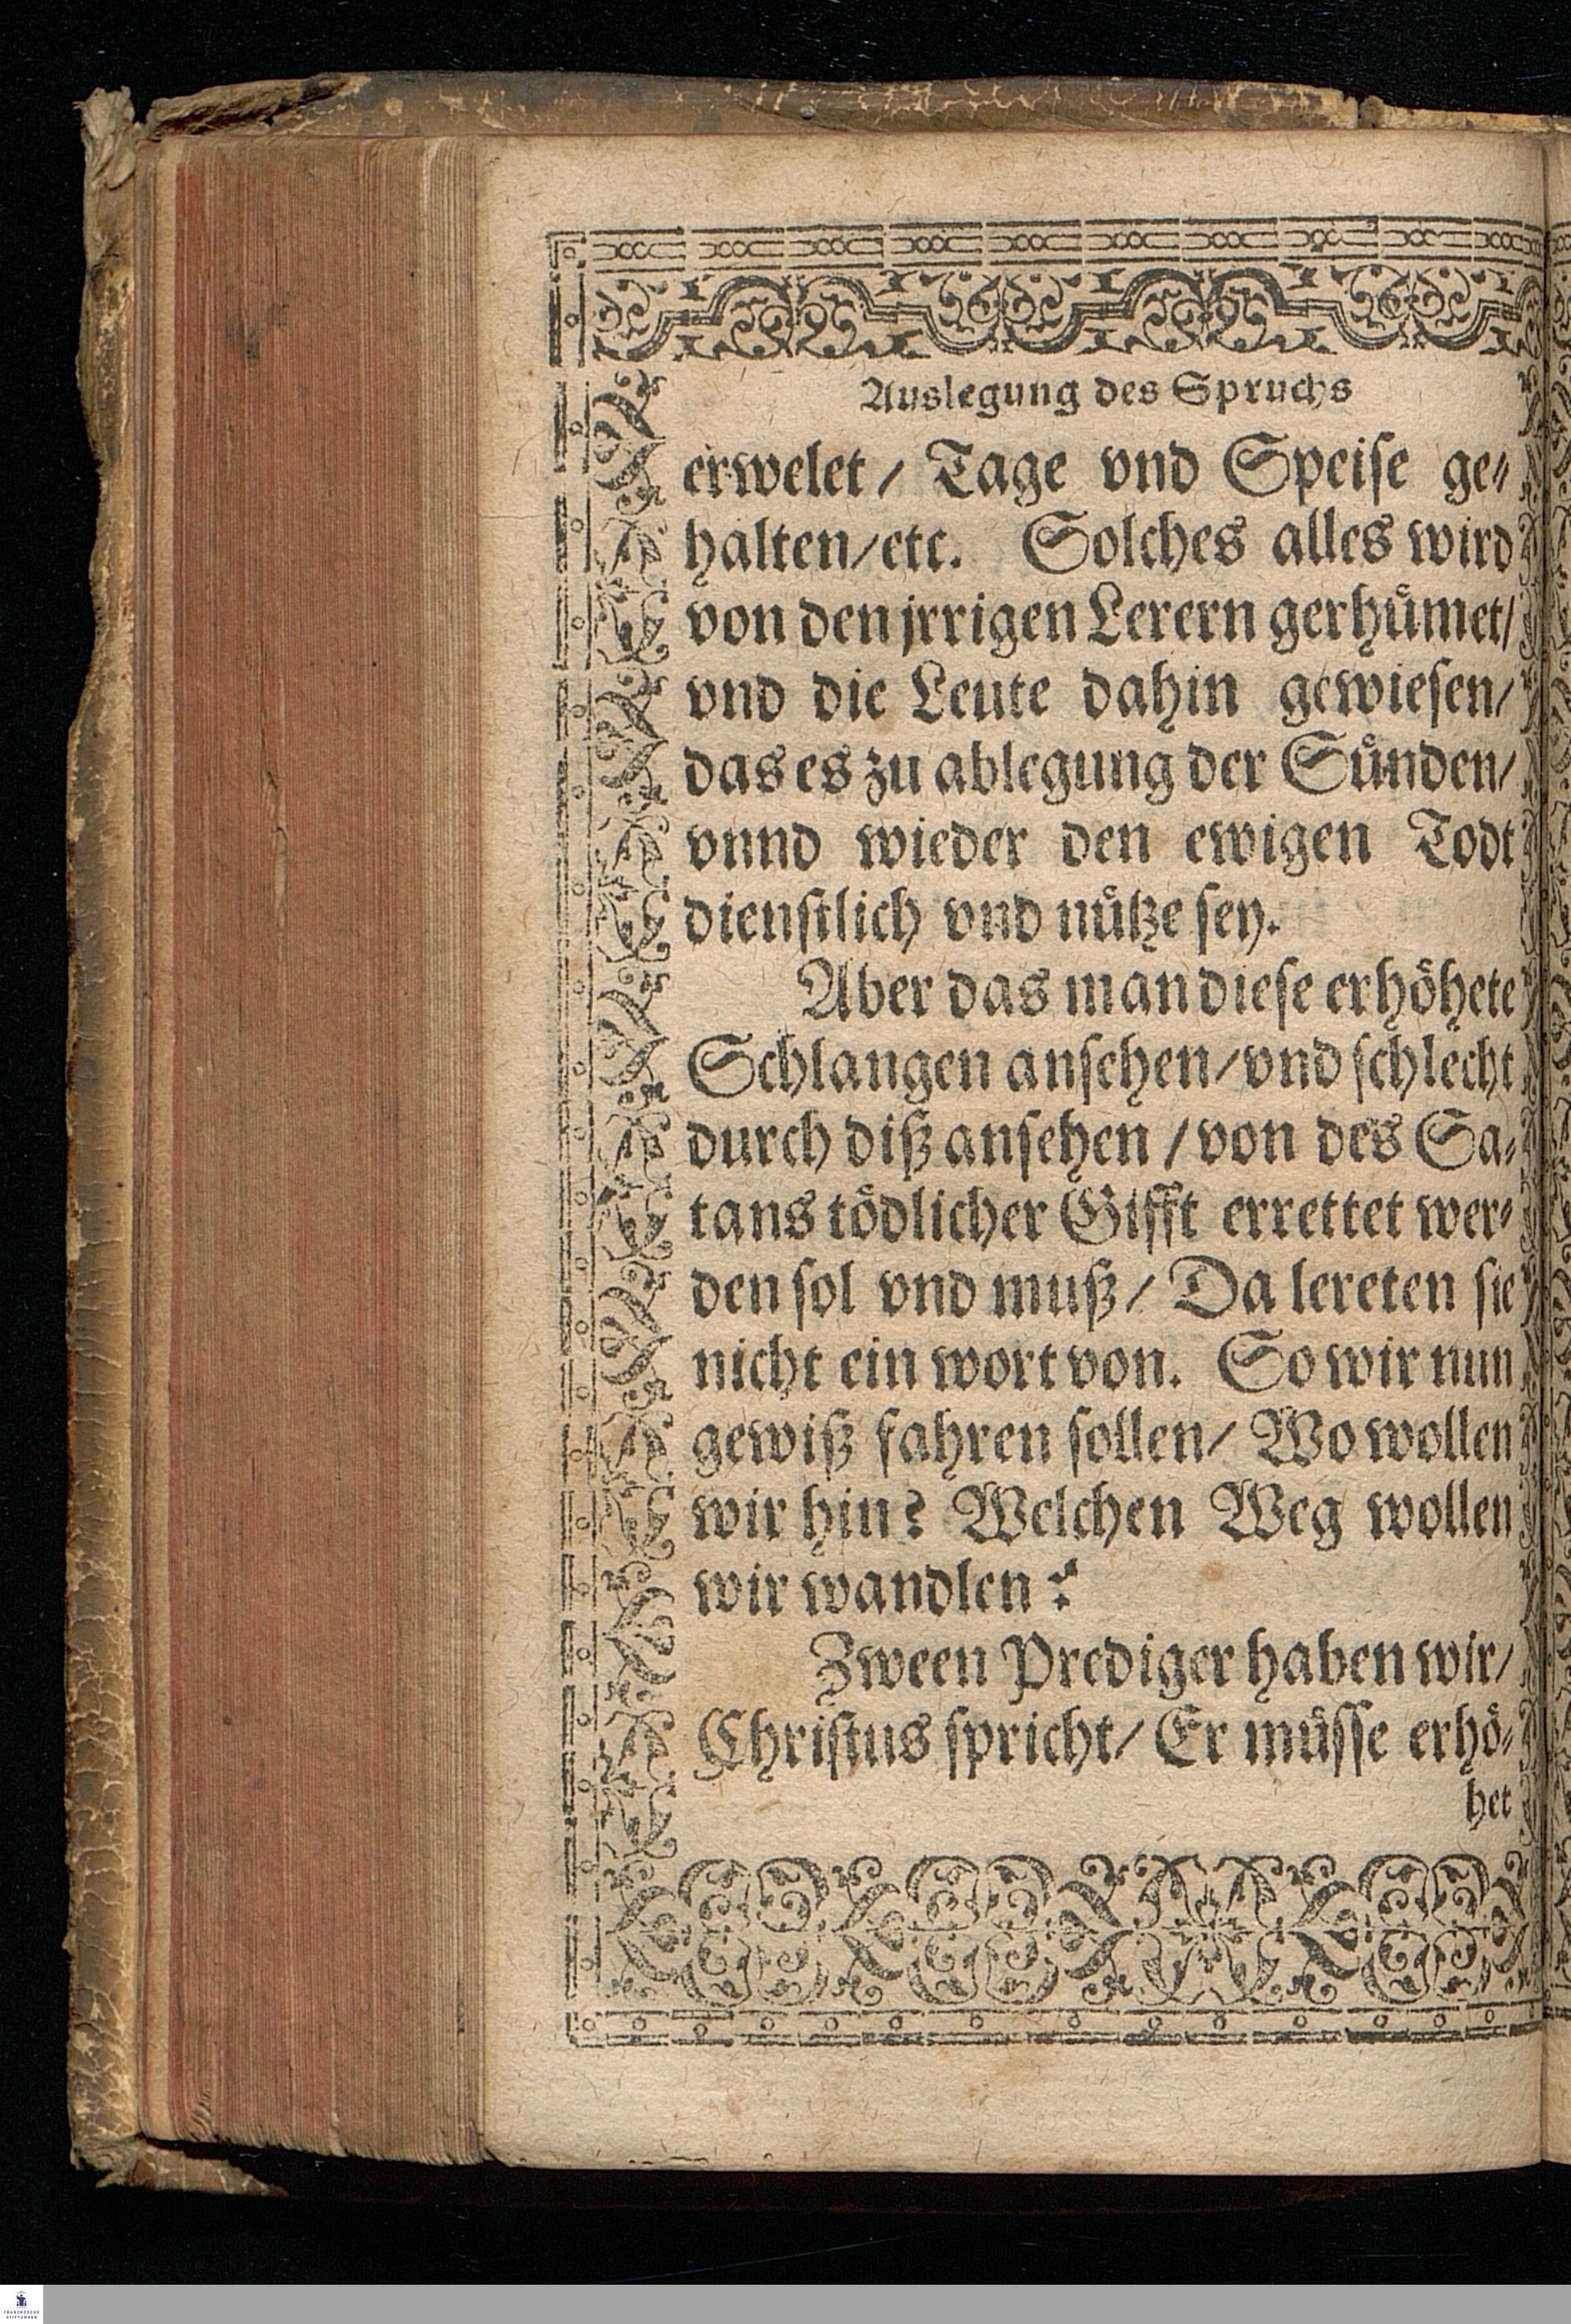 Auslegung des Spruchs
erwelet / Tage vnd Speise ge⸗
halten/etc. Solches alles wird
von den jrrigen Lerern gerhuͤmet/
vnd die Leute dahin gewiesen/
das es zu ablegung der Suͤnden/
vnnd wieder den ewigen Todt
dienstlich vnd nuͤtze sey.
Aber das man diese erhoͤhete
Schlangen ansehen/vnd schlecht
durch diß ansehen / von des Sa⸗
tans toͤdlicher Gifft errettet wer⸗
den sol vnd muß/ Da lereten sie
nicht ein wort von. So wir nun
gewiß fahren sollen/ Wo wollen
wir hin? Welchen Weg wollen
wir wandlen?
Zween Prediger haben wir/
Christus spricht/ Er muͤsse erhoͤ⸗
het
FRANCKESCHE
STIFTUNGEN